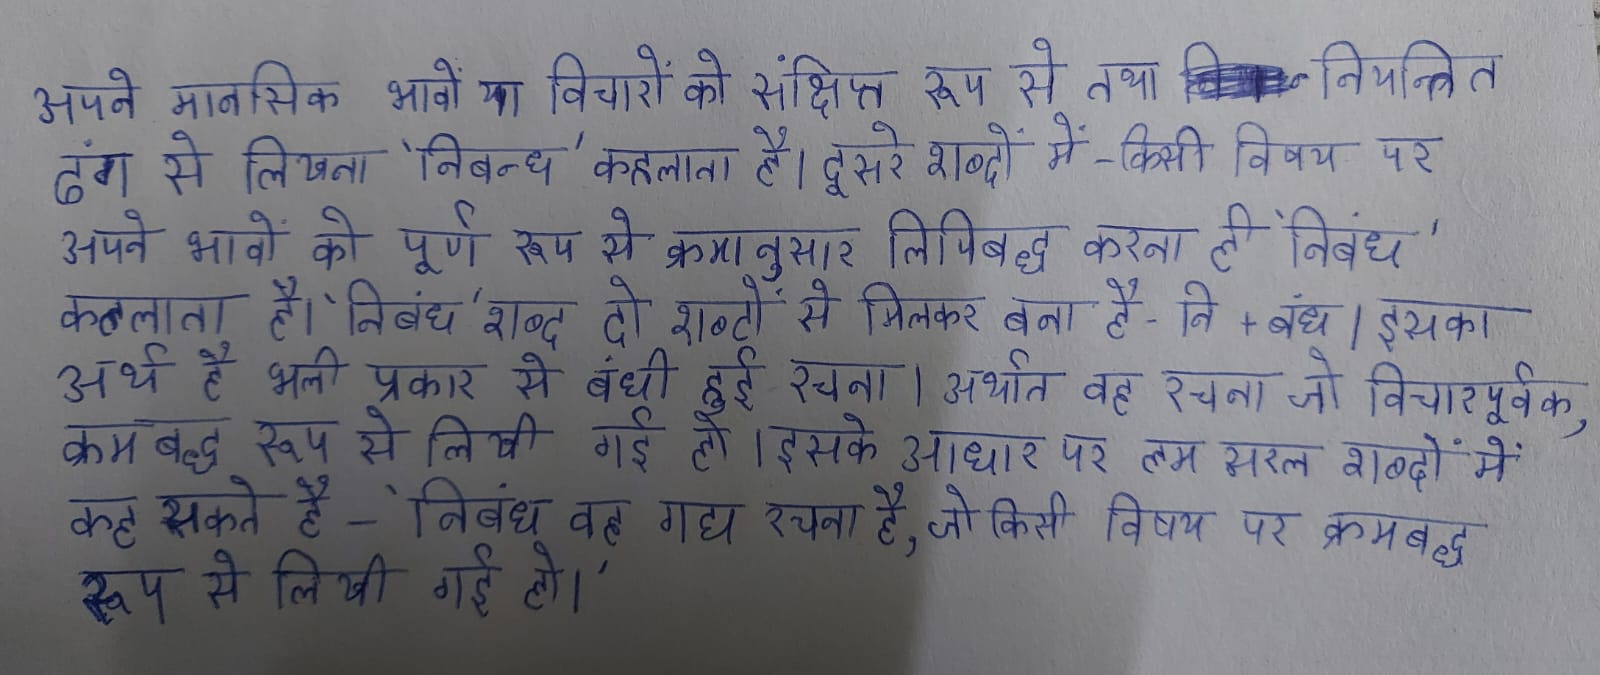 अपने मानसिक भावों या विचारों को संक्षिप्त रूप से तथा नियन्त्रित
ढंग से लिखना 'निबन्ध' कहलाता है। दूसरे शब्दों में - किसी विषय पर
अपने भावों को पूर्ण रूप से क्रमानुसार लिपिबद्ध करना ही 'निबंध'
कहलाता है। 'निबंध' शब्द दो शब्दों से मिलकर बना है - नि + बंध। इसका
अर्थ है भली प्रकार से बंधी हुई रचना। अर्थात वह रचना जो विचारपूर्वक,
क्रमबद्ध रूप से लिखी गई हो। इसके आधार पर हम सरल शब्दों में
कह सकते है - 'निबंध वह गद्य रचना है, जो किसी विषय पर क्रमबद्ध
रूप से लिखी गई हो।'